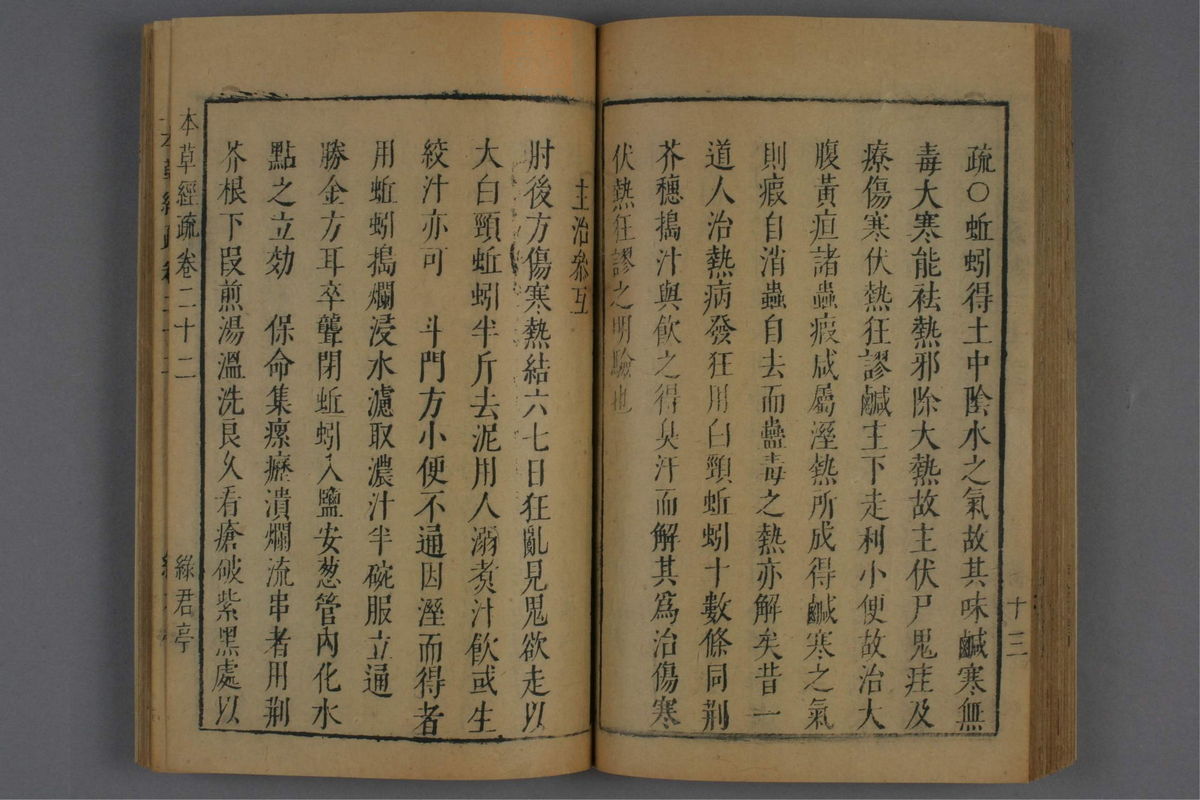 疏○蚯蚓得土中陰水之氣故其味鹹寒無
毒大寒能袪熱邪除大熱故主伏尸鬼疰及
療傷寒伏熱狂謬鹹主下走利小便故治大
腹黃疸諸蟲瘕咸屬溼熱所成得鹹寒之氣
則瘕自消蟲自去而蠱毒之熱亦解矣昔一
道人治熱病發狂用白頸蚯蚓十數條同荆
芥穗搗汁與飮之得臭汗而解其爲治傷寒
伏熱狂謬之明驗也
十三
主治參互
肘後方傷寒熱結六七日狂亂見鬼欲走以
大白頸蚯蚓半斤去泥用人溺煑汁飮或生
絞汁亦可　斗門方小便不通因溼而得者
用蚯蚓搗爛浸水濾取濃汁半碗服立通
勝金方耳卒聾閉蚯蚓入鹽安葱管內化水
點之立効　保命集瘰癧潰爛流串者用荆
芥根下段煎湯溫洗良久看瘡破紫黑處以
本草經疏卷二十二
綠君亭